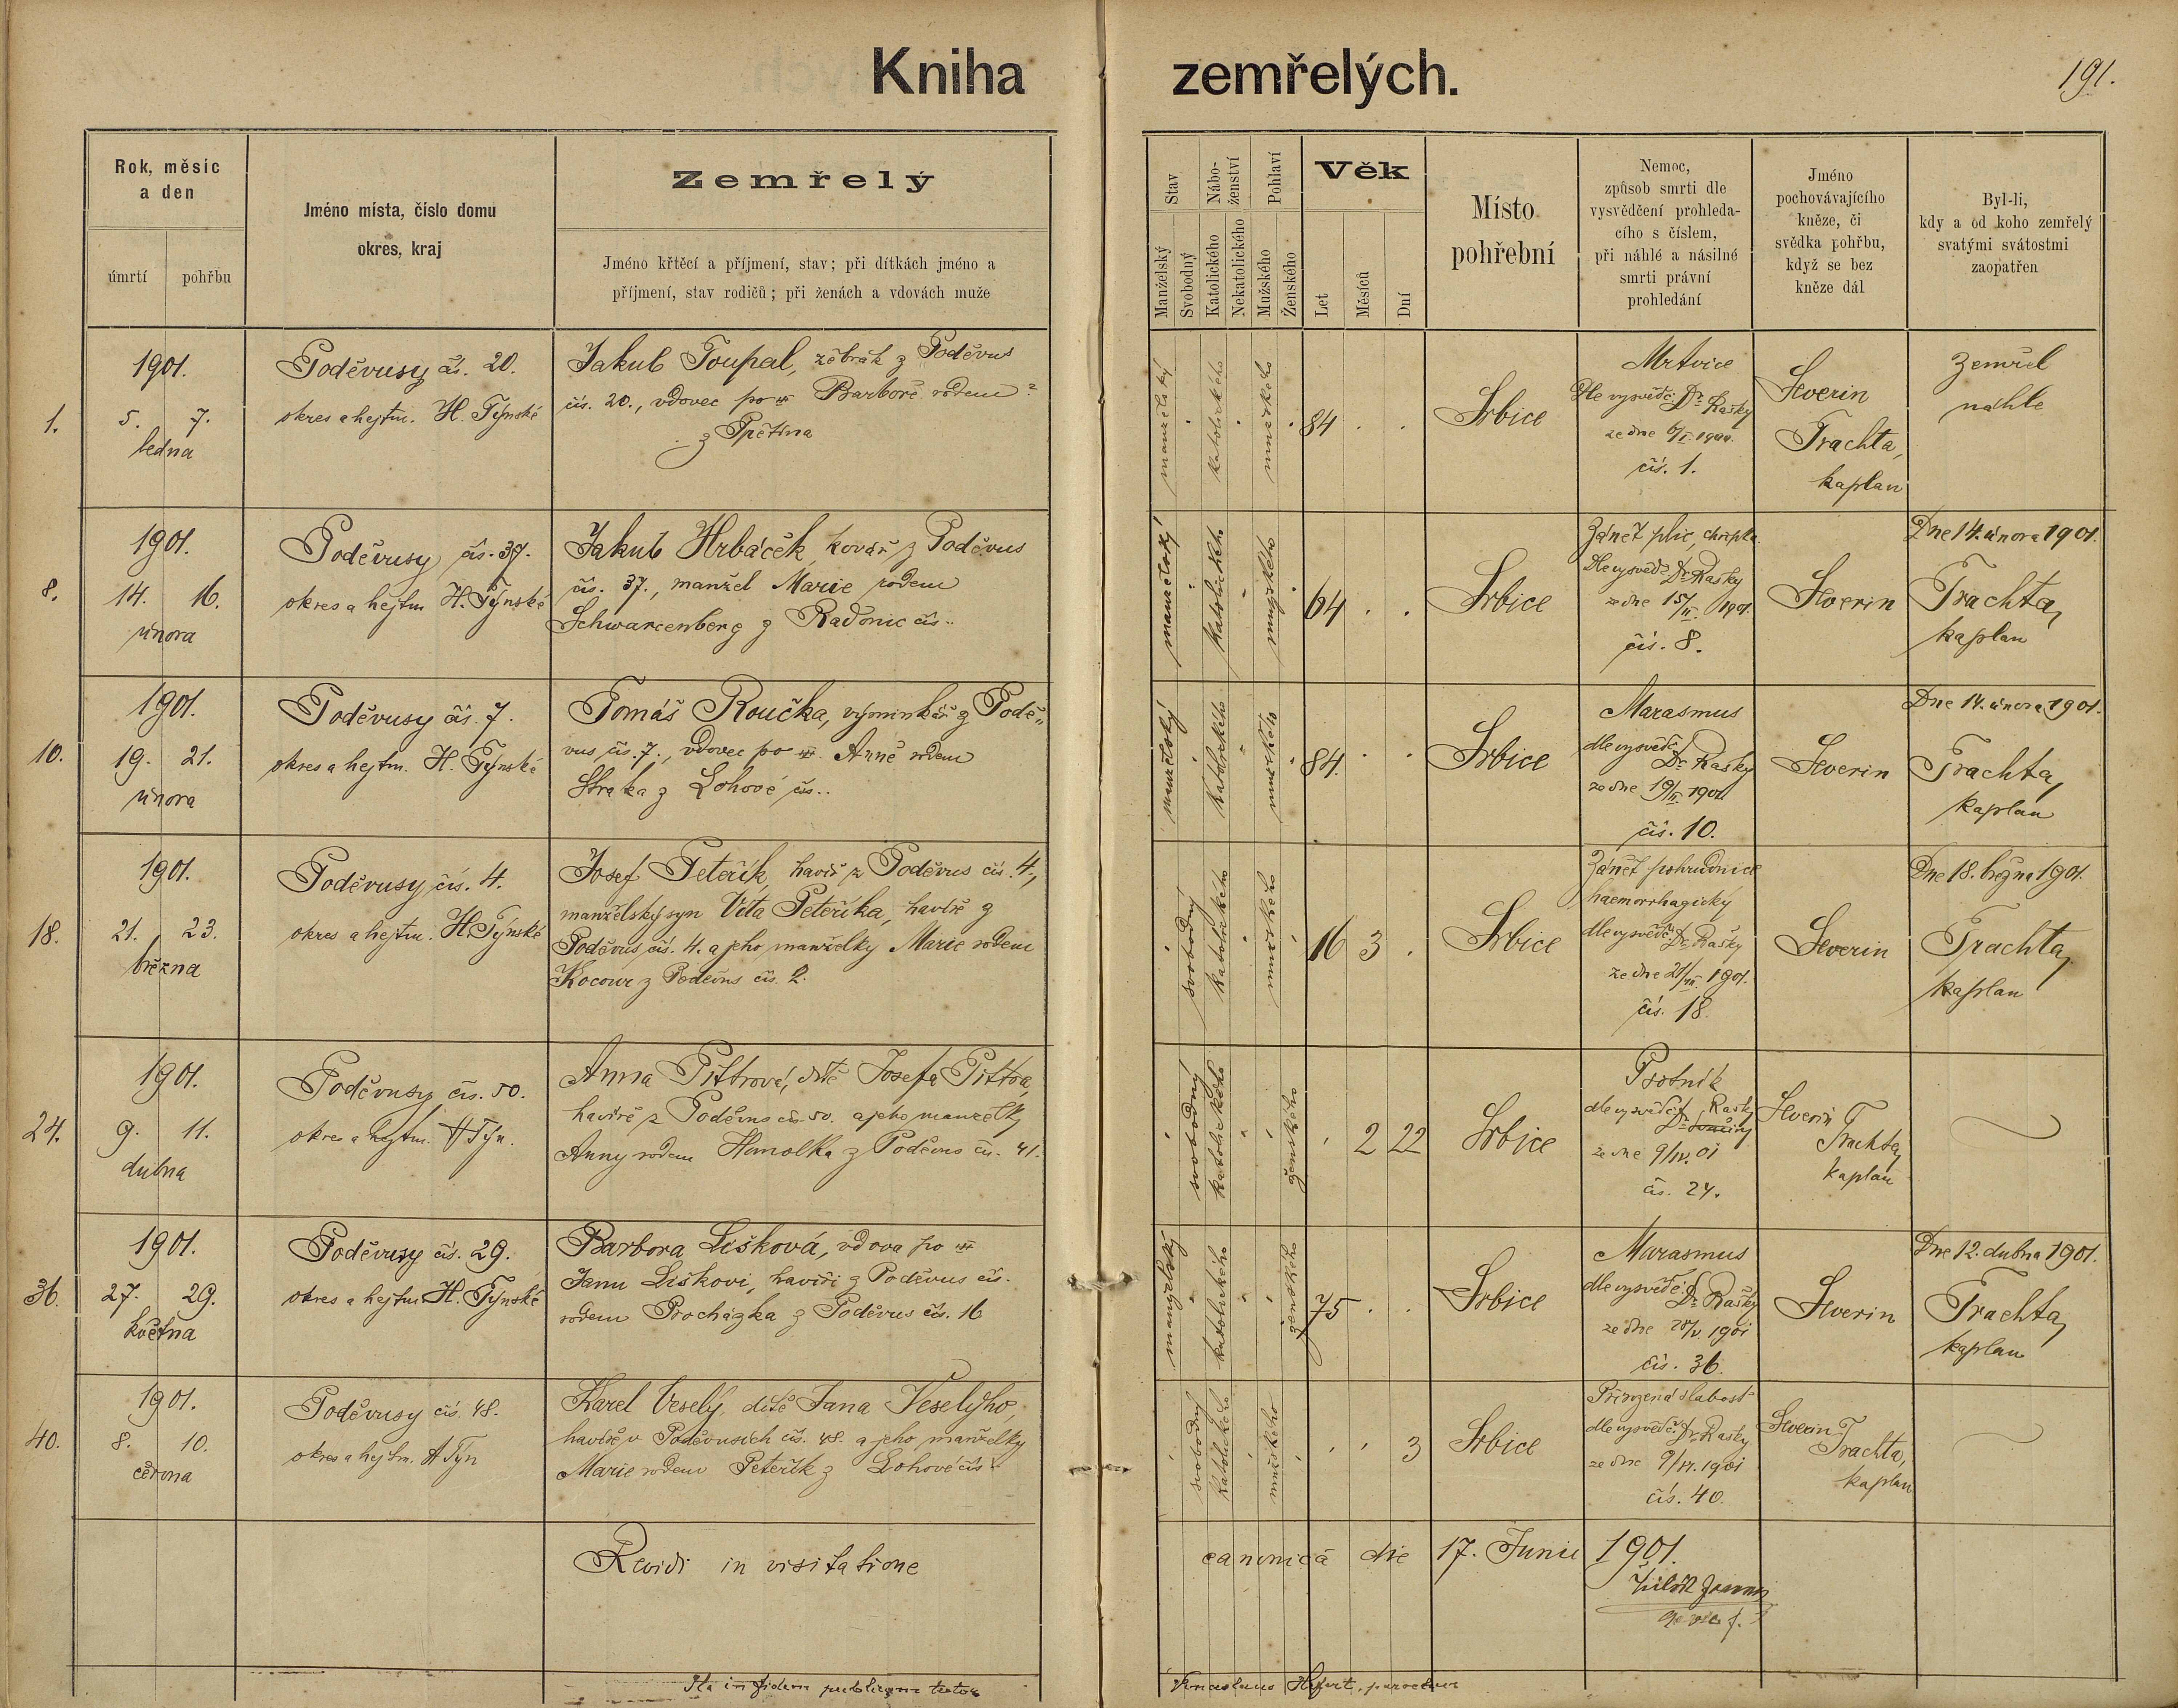 Kniha zemřelých.
191.
Rok, měsíc
a den
úmrtí
pohřbu
Jméno místa, číslo domu
okres, kraj
Zemřelý
Jméno křtěcí a příjmení, stav; při dítkách jméno a
příjmení, stav rodičů; při ženách a vdovách muže
Stav
Manželský
Svobodný
Nábo-
ženství
Katolického
Nekatolického
Pohlaví
Mužského
Ženského
Věk
Let
Měsíců
Dní
Místo
pohřební
Nemoc,
způsob smrti dle
vysvědčení prohleda-
cího s číslem,
při náhlé a násilné
smrti právní
prohledání
Jméno
pochovávajícího
kněze, či
svědka pohřbu,
když se bez
kněze dál
Byl-li,
kdy a od koho zemřelý
svatými svátostmi
zaopatřen
1.
1901.
5. 7.
ledna
Poděvusy čís. 20.
okres a hejtm. H. Týnské
Jakub Toupal, žebrák z Poděvus
čís. 20., vdovec po Barboře rodem ?
z Spětína
manželský
katolického
mužského
84 . .
Srbice
Mrtvice
Dle vysvědč. Dr. Rašky
ze dne 6/I. 1901.
čís. 1.
Severin
Trachta,
kaplan
Zemřel
náhle
8.
1901.
14. 16.
února
Poděvusy čís. 37.
okres a hejtm. H. Týnské
Jakub Hrbáček, kovář z Poděvus
čís. 37., manžel Marie rodem
Schwarcenberg z Radonic čís..
manželský
katolického
mužského
64 . .
Srbice
Zánět plic, chřipka
Dle vysvědč. Dr. Rašky
ze dne 15/II. 1901.
čís. 8.
Severin
Dne 14. února 1901.
Trachta,
kaplan
10.
1901.
19. 21.
února
Poděvusy čís. 7.
okres a hejtm. H. Týnské
Tomáš Roučka, výminkář z Podě-
vus čís. 7., vdovec po Anně rodem
Straka z Lohové čís..
manželský
katolického
mužského
84. . .
Srbice
Marasmus
dle vysvědč.
Dr. Rašky
ze dne 19/II. 1901
čís. 10.
Severin
Dne 14. února 1901.
Trachta,
kaplan
18.
1901.
21. 23.
března
Poděvusy čís. 4.
okres a hejtm. H. Týnské
Josef Peteřík, havíř z Poděvus čís. 4.,
manželský syn Víta Peteříka, havíře z
Poděvus čís. 4. a jeho manželky Marie rodem
Kocour z Poděvus čís. 2.
svobodný
katolického
mužského
16 3 .
Srbice
Zánět pohrudnice
haemorrhagický
dle vysvědč. Dr. Rašky
ze dne 21/III. 1901.
čís. 18.
Severin
Dne 18. března 1901.
Trachta,
kaplan
24.
1901.
9. 11.
dubna
Poděvusy čís. 50.
okres a hejtm. H Týn.
Anna Pittrová, dítě Josefa Pittra,
havíře z Poděvus čís. 50. a jeho manželky
Anny rodem Hamolka z Poděvus čís. 41.
svobodný
katolického
ženského
. 2 22
Srbice
Psotník
dle vysvědč. Rašky
Dr.
ze dne 9/IV. 01
čís. 24.
Severin
Trachta,
kaplan
36.
1901.
27. 29.
května
Poděvusy čís. 29.
okres a hejtm. H. Týnské
Barbora Lišková, vdova po
Janu Liškovi, havíři z Poděvus čís.
rodem Procházka z Poděvus čís. 16
manželský
katolického
ženského
75 . .
Srbice
Marasmus
dle vysvědč.
Dr. Rašky
ze dne 28/V. 1901
čís. 36.
Severin
Dne 12. dubna 1901.
Trachta,
kaplan
40.
1901.
8. 10.
června
Poděvusy čís. 48.
okres a hejtm. H Týn
Karel Veselý, dítě Jana Veselýho,
havíře v Poděvusích čís. 48. a jeho manželky
Marie rodem Peteřík z Lohové čís.
svobodný
katolického
mužského
. . 3
Srbice
Přirozená slabost
dle vysvědč. Dr. Rašky
ze dne 9/VI. 1901
čís. 40.
Severin
Trachta,
kaplan
Revidi in visitatione canonica die 17. Junii 1901.
Ita in fidem publicam testor Venceslaus Hefert, parochus